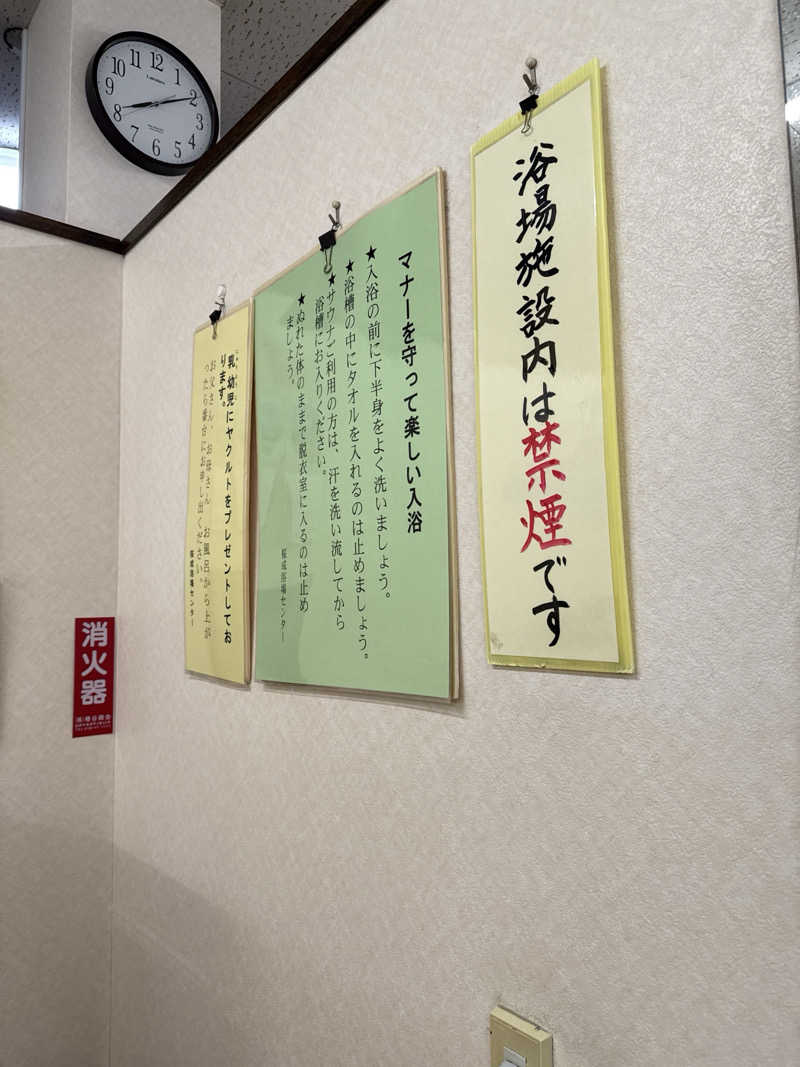 浴場施設内は禁煙です
マナーを守って楽しい入浴
★入浴の前に下半身をよく洗いましょう。
★浴槽の中にタオルを入れるのは止めましょう。
★サウナご利用の方は、汗を洗い流してから
浴槽にお入りください。
★ぬれた体のままで脱衣室に入るのは止め
ましょう。
桜成浴場センター
乳幼児にヤクルトをプレゼントしてお
ります。
お父さん、お母さん お風呂から上が
ったら番台にお申し出ください。
桜成浴場センター
消火器
12
1
2
3
4
5
6
7
8
9
10
11